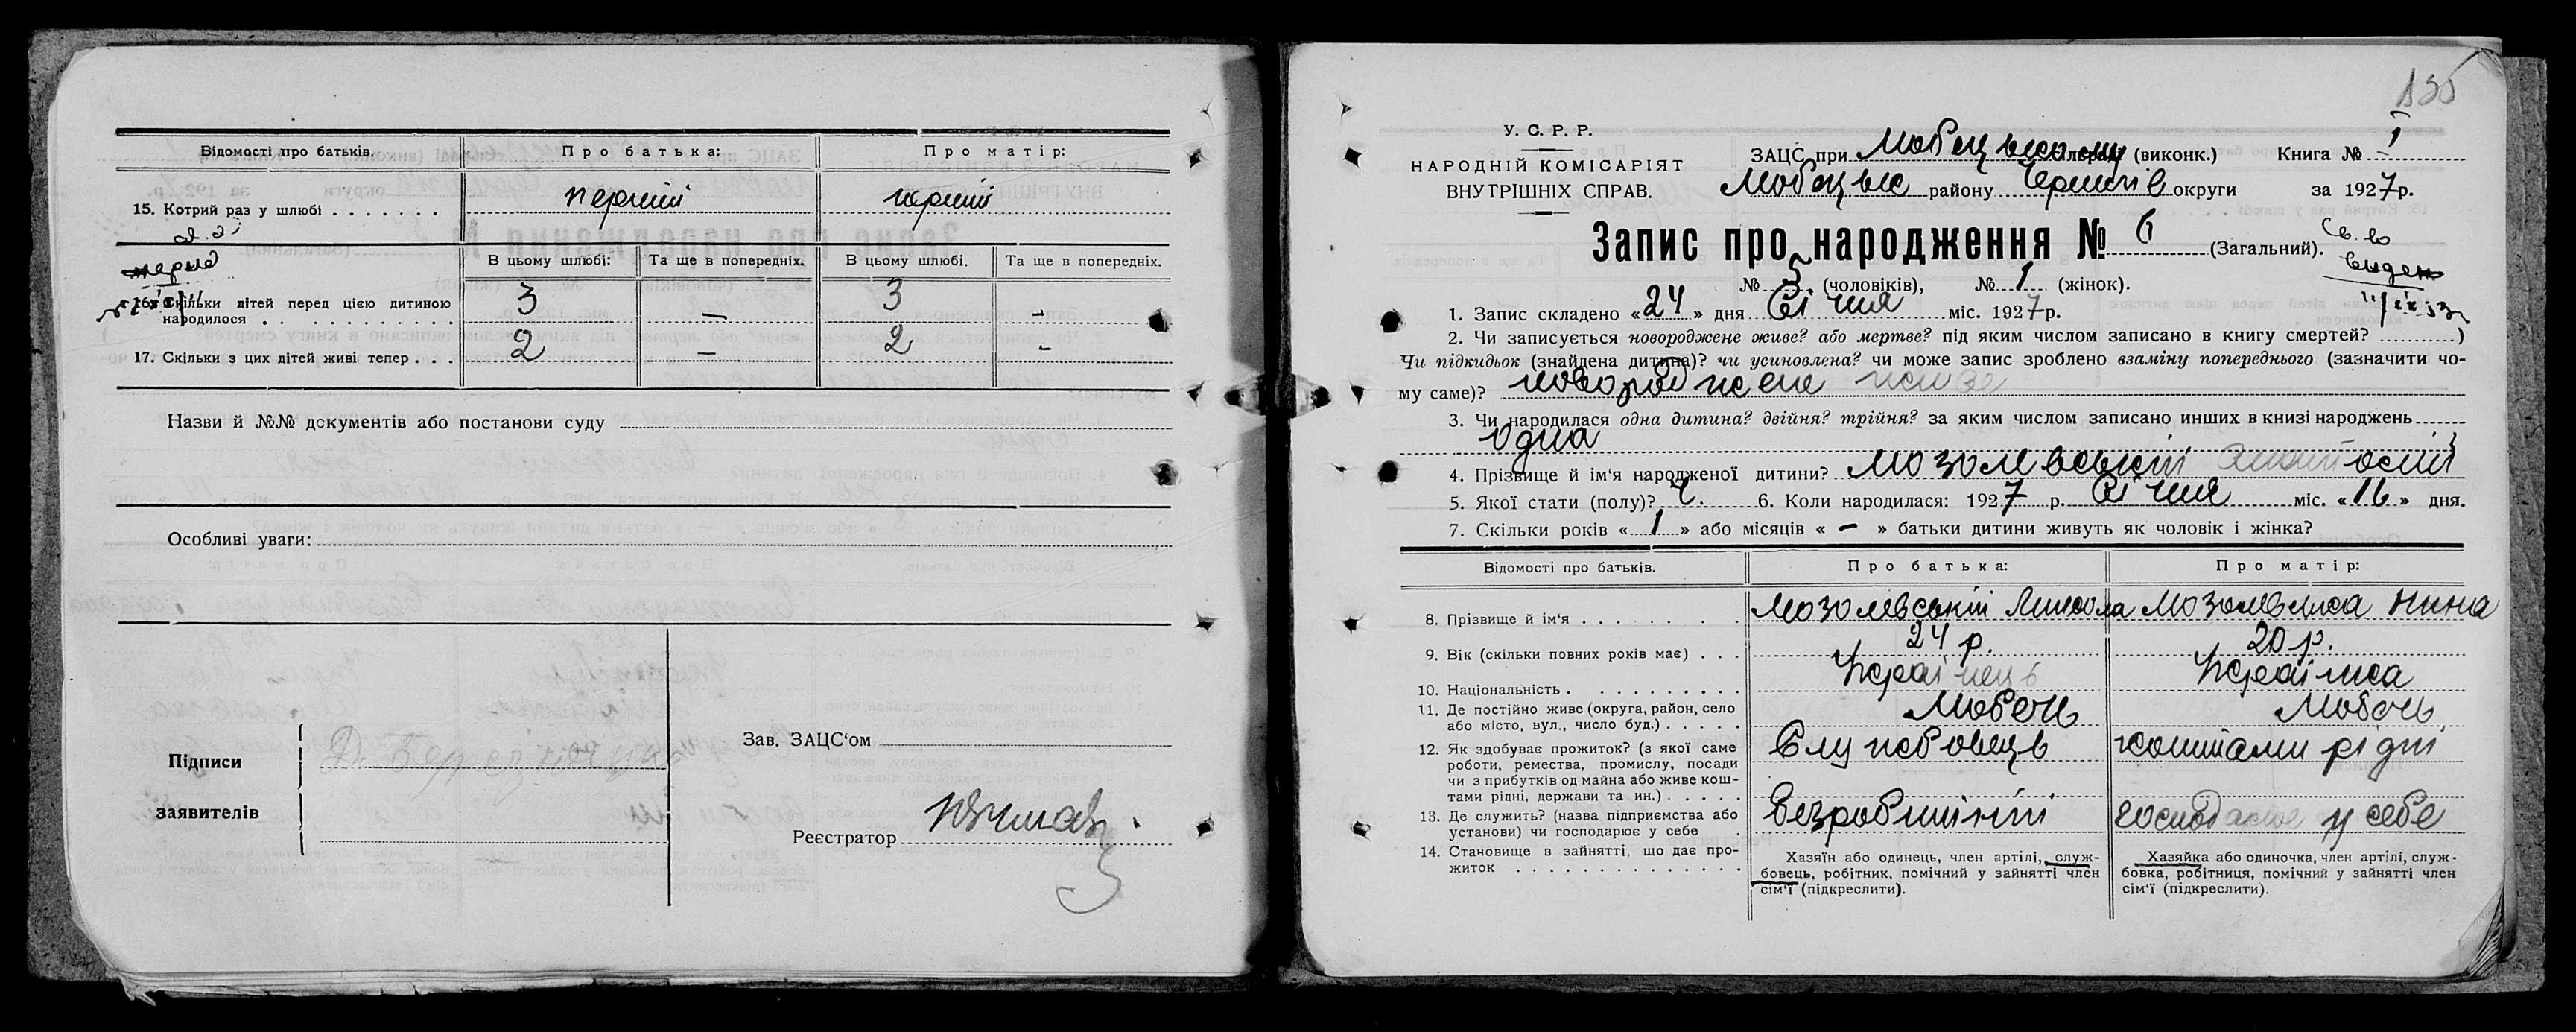 Відомості про батьків.
Про батька:
Про матір:
15. Котрий раз у шлюбі
перший
перший
В цьому шлюбі:
Та ще в попередніх.
В цьому шлюбі.
Та ще в попередніх.
16. Скільки дітей перед цією дитиною
народилося
3
—
3
-
17. Скільки з цих дітей живі тепер
2
—
2
-
Назви й №№ документів або постанови суду
Особливі уваги:
Підписи
заявителів
Зав. ЗАЦС'ом
Реєстратор
135
У. С. Р. Р.
НАРОДНІЙ КОМІСАРІЯТ
ВНУТРІШНІХ СПРАВ.
ЗАЦС при (виконк.) Книга № I
району округи за 1927 р.
Запис про народження № 6 (Загальний).
№ 5 (чоловіків), № 1 (жінок).
1. Запис складено «24» дня Січня міс. 1927 р.
2. Чи записується новороджене живе? або мертве? під яким числом записано в книгу смертей? )
Чи підкидьок (знайдена дитина)? чи усиновлена? чи може запис зроблено взаміну попереднього (зазначити чо-
му саме)? новорожене живе
3. Чи народилася одна дитина? двійня? трійня? за яким числом записано инших в книзі народжень
одна
4. Прізвище й ім'я народженої дитини? Мозолевський
5. Якої стати (полу)? ч. 6. Коли народилася: 1927 р. Січня міс. «16» дня.
7. Скільки років «1» або місяців «—» батьки дитини живуть як чоловік і жінка?
Відомості про батьків.
Про батька:
Про матір:
8. Прізвище й ім'я
Мозолевський Микола
Мозолевська Нина
9. Вік (скільки повних років має)
24 р.
20 р.
10. Національність
Українець
Українка
11. Де постійно живе (округа, район, село
або місто, вул., число буд.)
Любеч
Любеч
12. Як здобуває прожиток? (з якої саме
роботи, ремества, промислу, посади
чи з прибутків од майна або живе кош-
тами рідні, держави та ин.)
Службовець
коштами рідні
13. Де служить? (назва підприємства або
установи) чи господарює у себе
безробітній
господарює у себе
14. Становище в зайнятті, що дає про-
житок
Хазяїн або одинець, член артілі, служ-
бовець, робітник, помічний у зайнятті член
сім'ї (підкреслити).
Хазяйка або одиночка, член артілі, служ-
бовка, робітниця, помічний у зайнятті член
сім'ї (підкреслити).